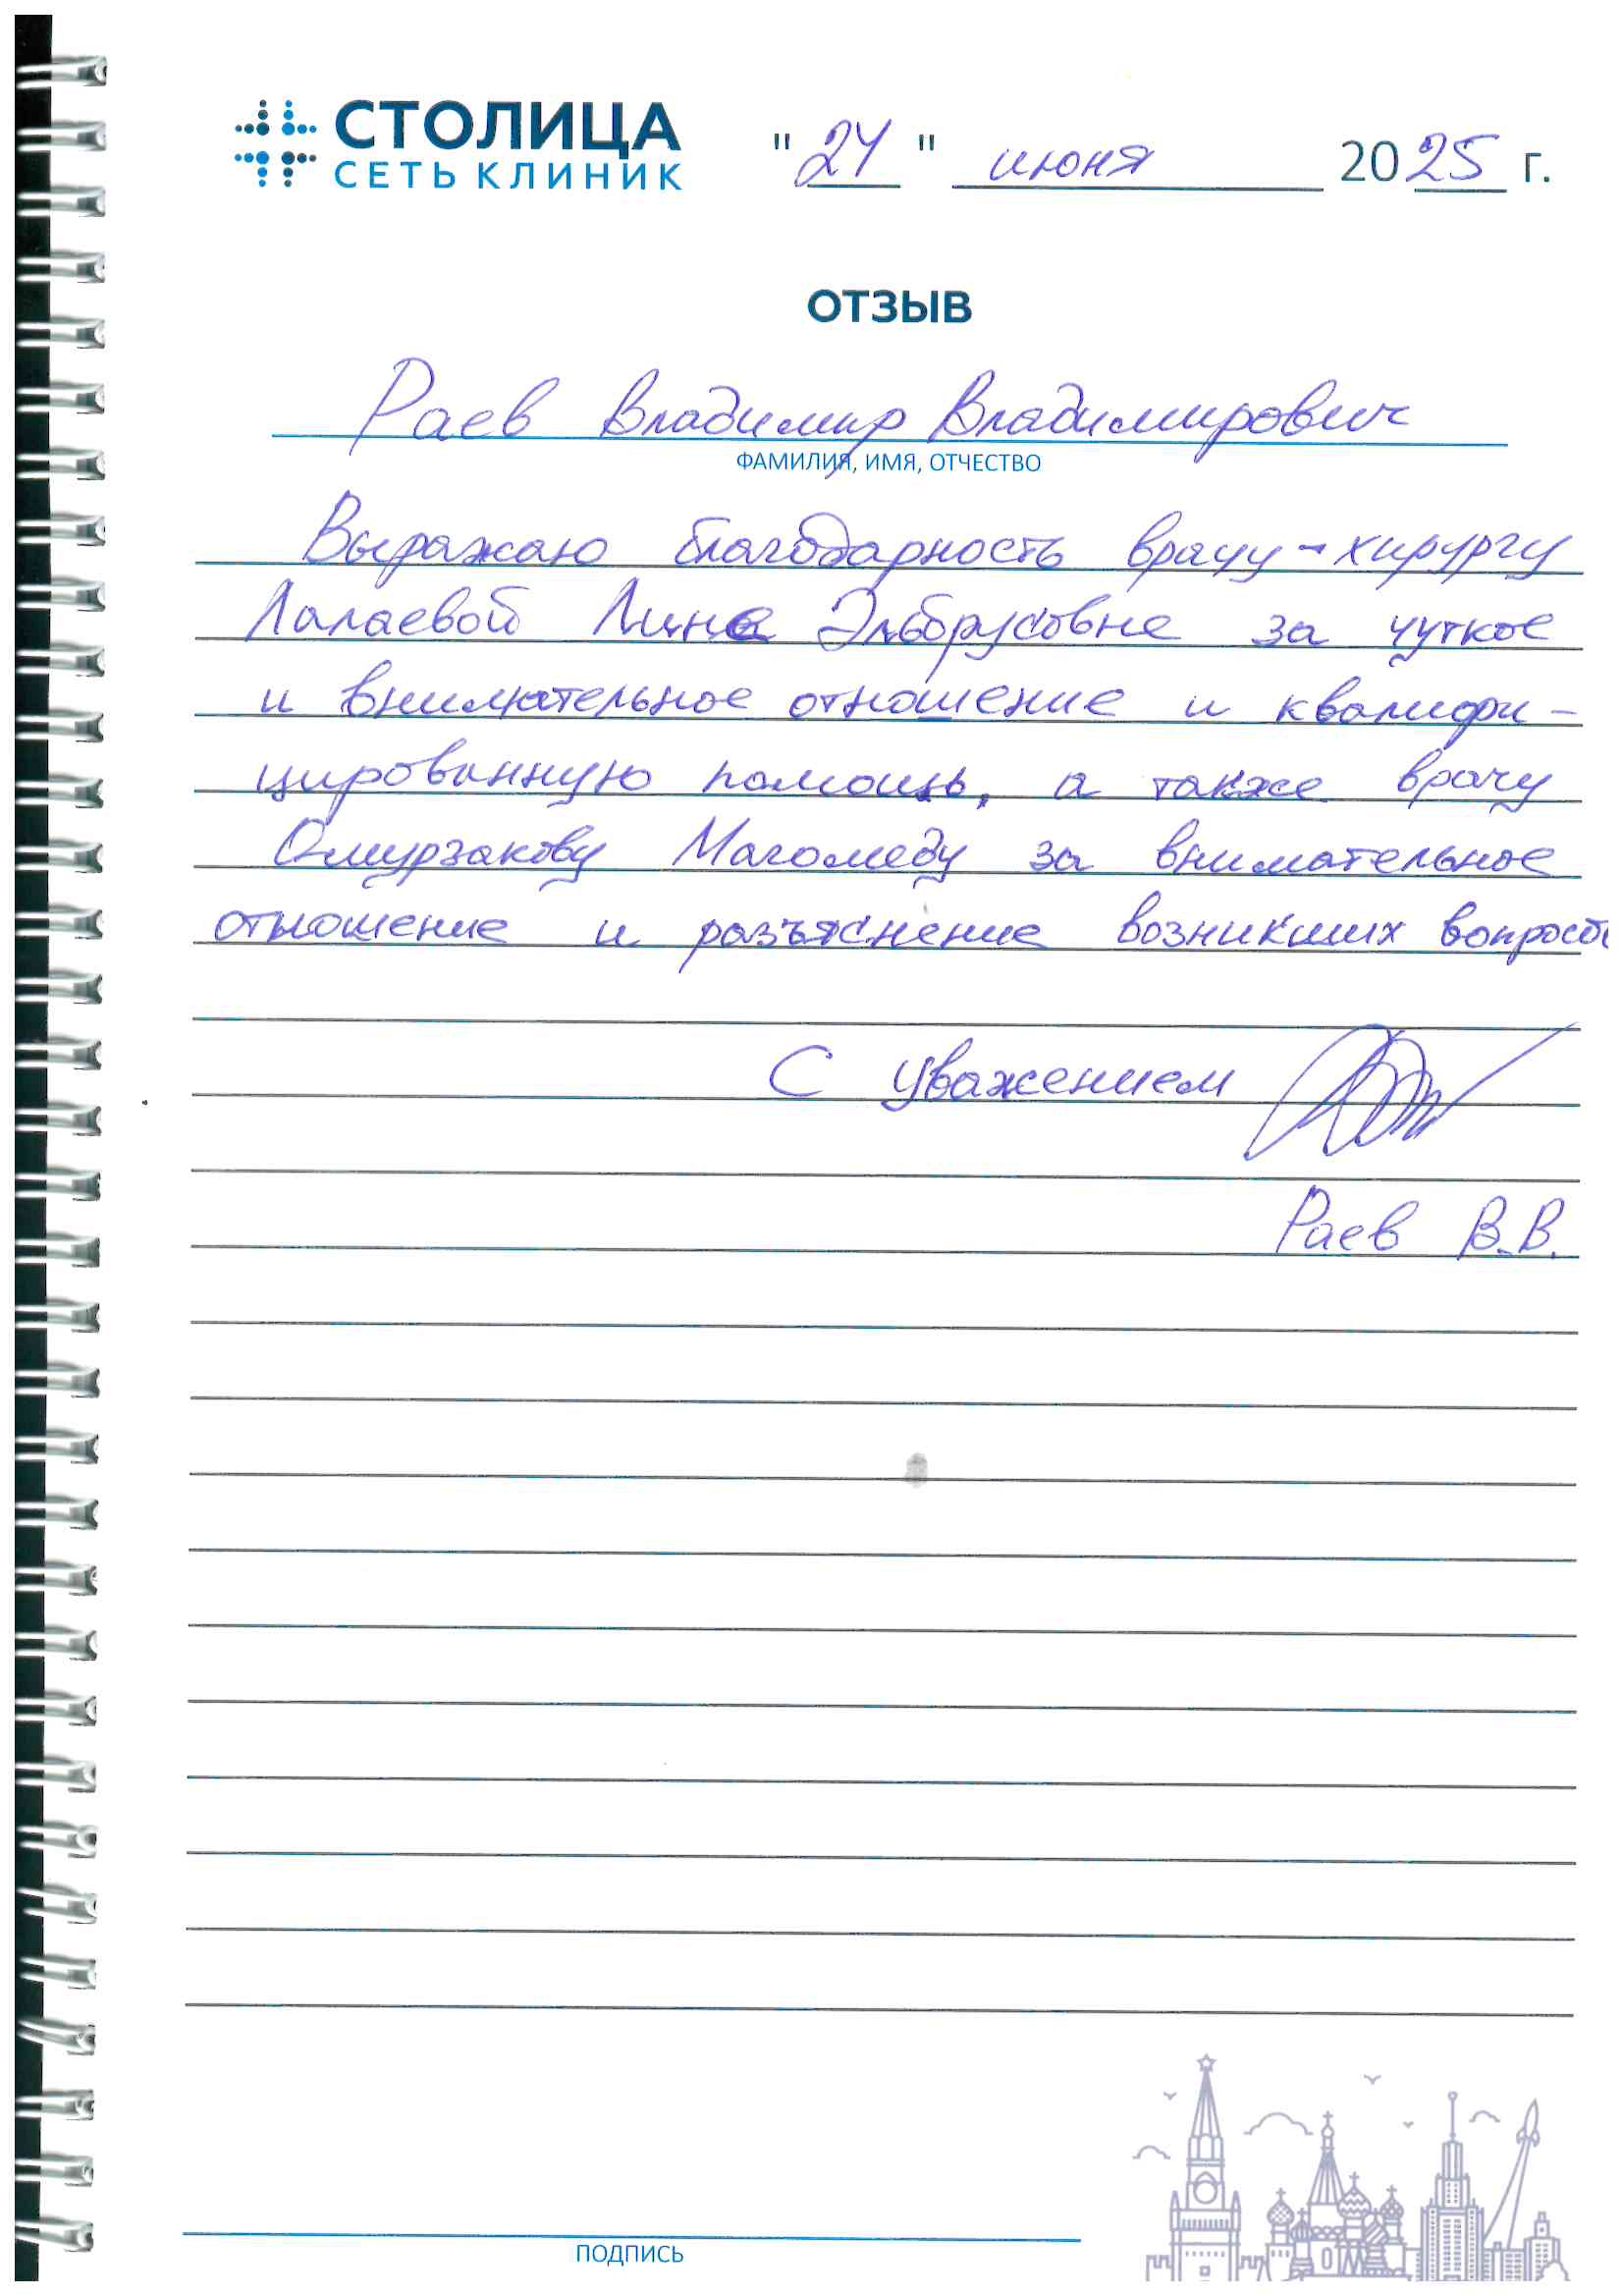 СТОЛИЦА
СЕТЬ КЛИНИК
"24" июня 2025 г.
ОТЗЫВ
Раев Владимир Владимирович
ФАМИЛИЯ, ИМЯ, ОТЧЕСТВО
Выражаю благодарность врачу-хирургу
Лалаевой Лине Эльбрусовне за чуткое
и внимательное отношение и квалифи-
цированную помощь, а также врачу
Омурзакову Магомеду за внимательное
отношение и разъяснение возникших вопросо
С уважением
Раев В.В.
ПОДПИСЬ